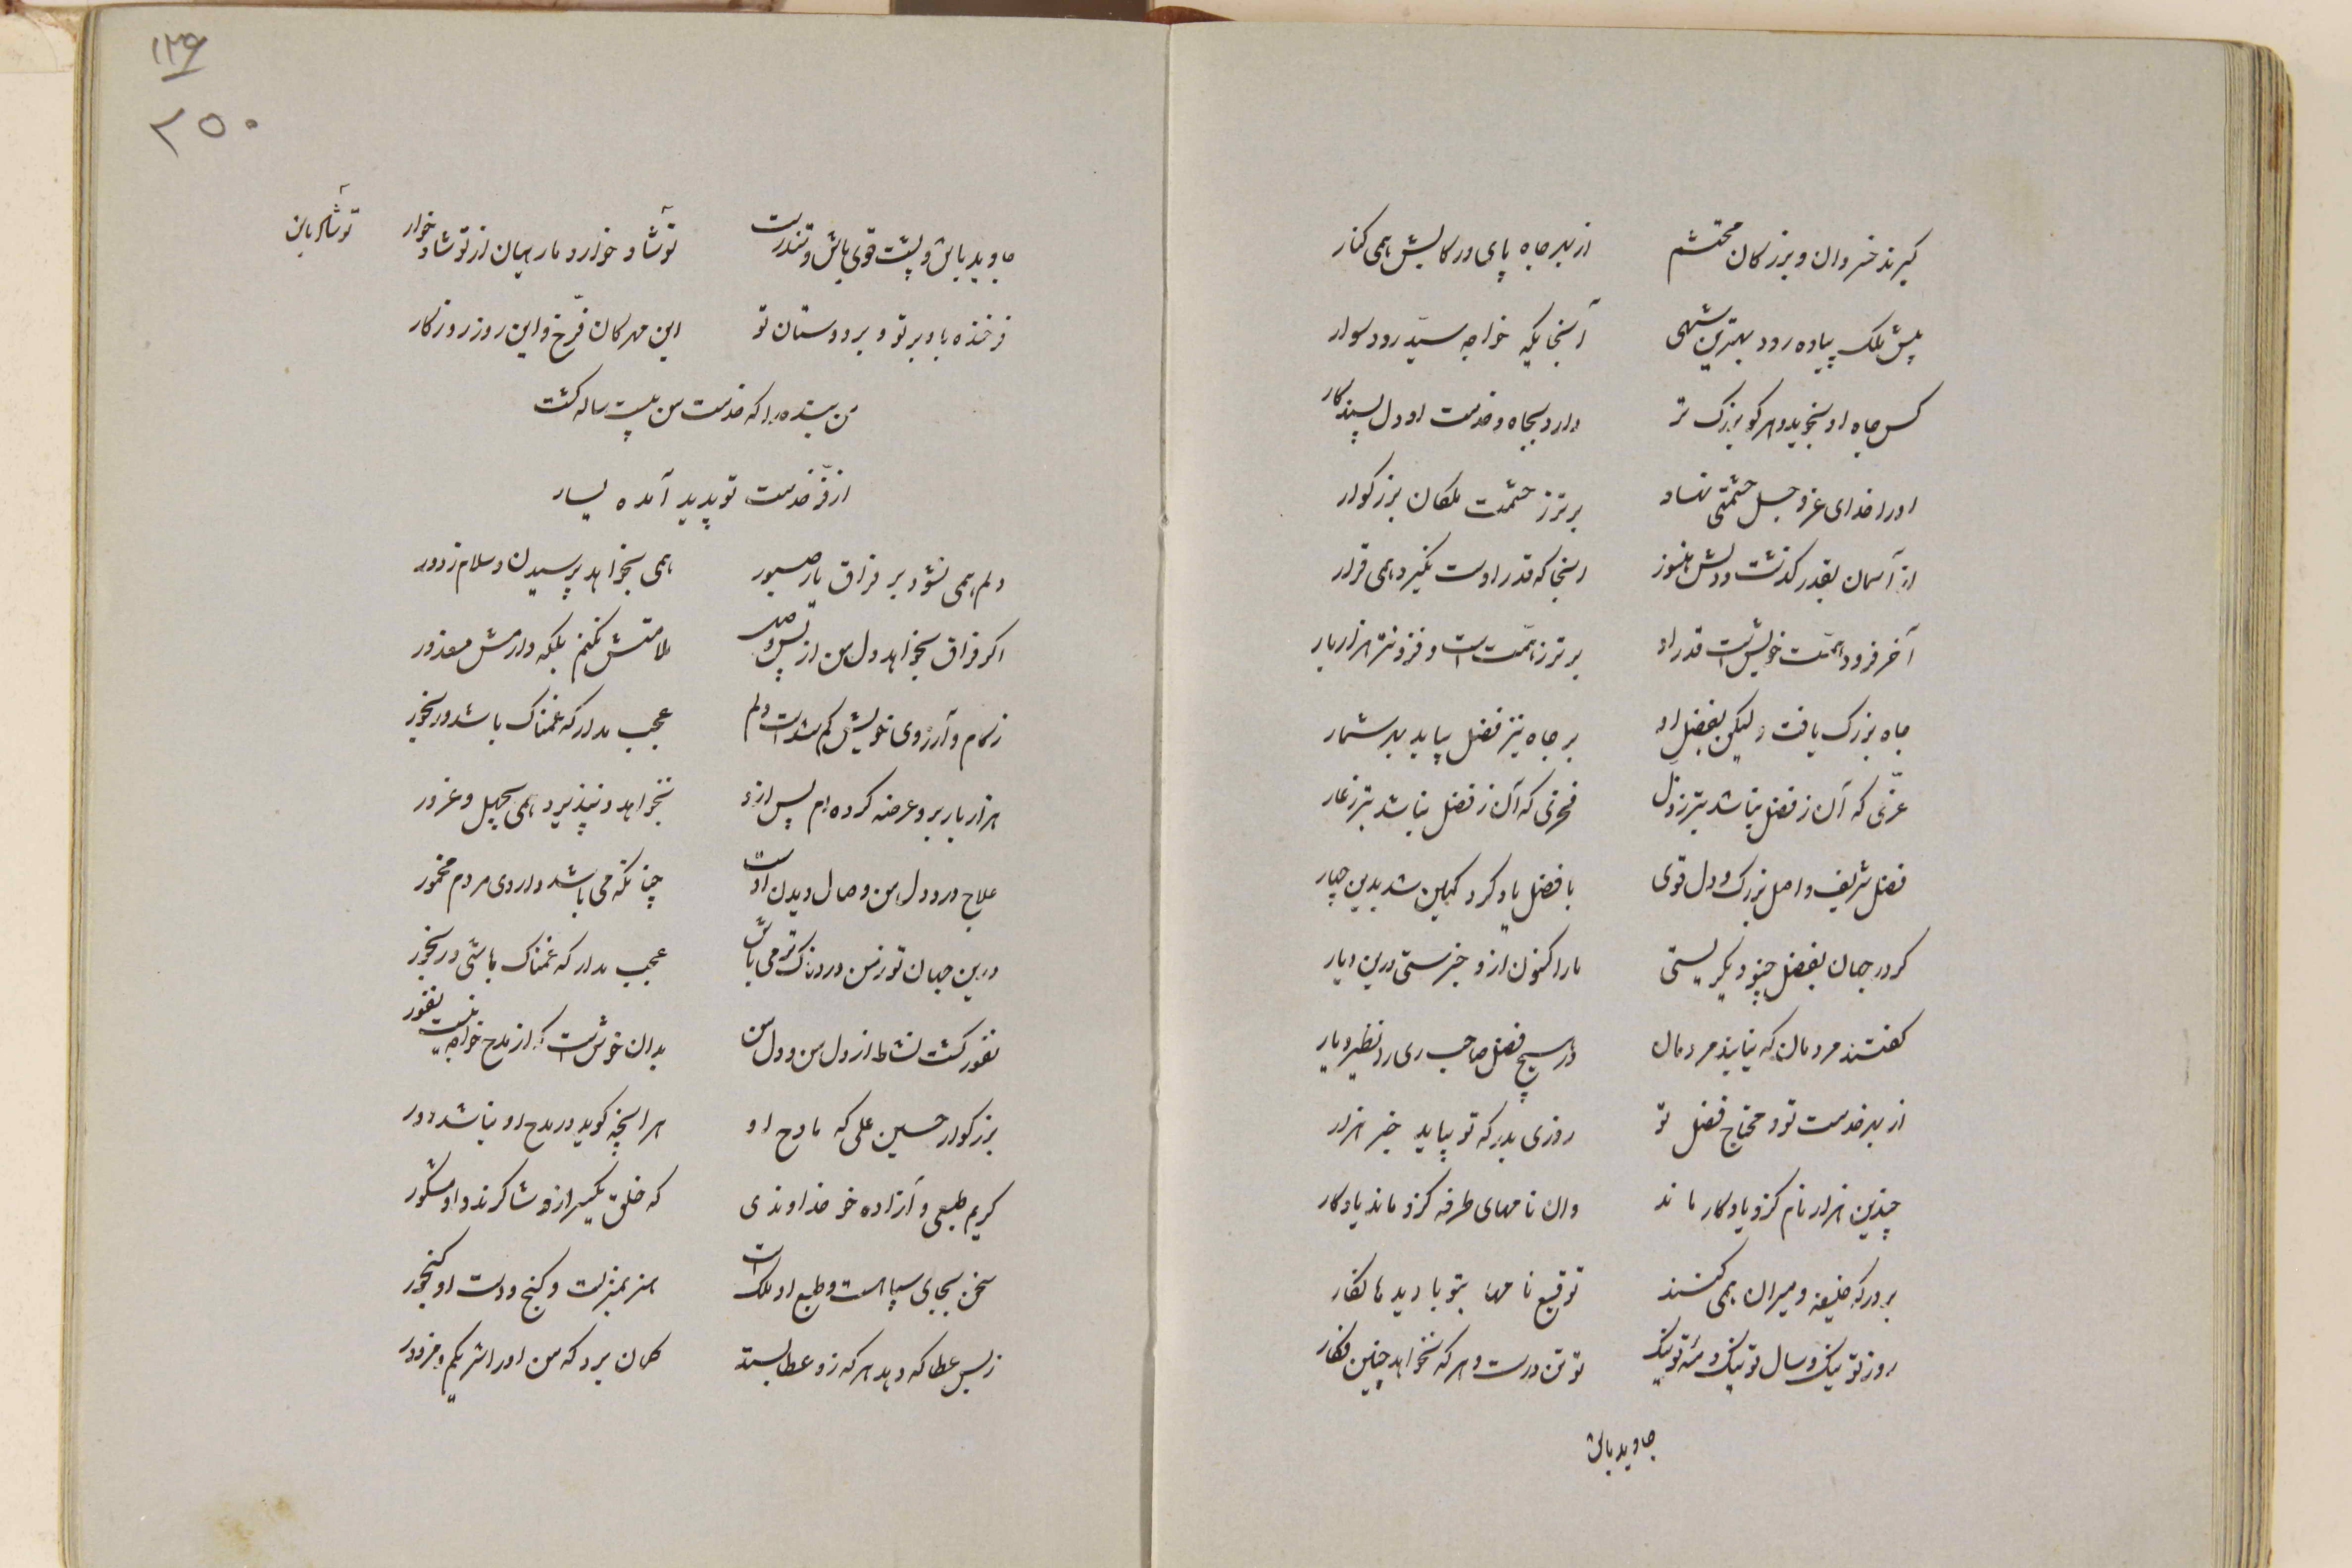 گیرند خسروان و بزرگان محتشم از بهر جاه پای و رکابش همی کنار
پیش ملک پیاده رود بهترین شهی آنجایگه خواجه سید رود سوار
کس جاه او نجوید و هر کو بزرگ تر دارد بجاه و خدمت او دل
او را خدای عز و جل حشمتی نهاد برتر ز حشمت ملکان بزرگوار
از آسمان بقدر گذشت و دلش هنوز اینجا که قدر اوست نگیرد همی قرار
آخر فرود همّت خویش است قدر او برتر ز همّت است و فزونتر هزار بار
جاه بزرگ یافت ولیکن بفضل او بر جاه نیز فضل بباید بدر شمار
عزّی که آن ز فضل نباشد بتر ز ذل فخری که آن ز فضل نباشد بتر ز عار
فضل شریف و اصل بزرگ و دل قوی با فضل یاد کرد
کر در جهان بفضل چنو دیگریستی ما را کنون ازو خبرستی درین دیار
گفتند مردمان که نیابند مردمان در هیچ فضل صاحب ری را نظیر و یار
از بهر خدمت تو و محتاج فضل تو روزی بدرگه تو بیاید خبر هزار
چندین هزار نام کزو یادگار ماند وان نامهای طرفه کزو ماند یادگار
بر درگه خلیفه و میران همی کشند توقیع نامها بتو بادید
روز تو نیک و سال تو نیک و مه تو نیک تو تن درست و هر که نخواهد چنین فکار
جاوید باش
۱۲۹
۲۵۰
جاوید باش و پشت قوی باش و تندرست تو شاد خوار و مار بیان از تو شاد خوار
تو شاکر باین
فرخنده باد بر تو و بر دوستان تو این مهرگان فرّخ و این روز روزگار
من بنده را که خدمت من بیست ساله گشت
از فرّ خدمت تو پدید آمده یسار
دلم همی نشود بر فراق یار صبور همی بخواهد پرسیدن و سلام ز دور
اگر فراق بخواهد دل من از پس وصل ملامتش نکنم بلکه دارمش معذور
ز کام و آرزوی خویش گم شده است دلم عجب مدار که غمناک باشد و رنجور
هزار بار برو عرضه کرده ام پس ازو نخواهد و نپذیرد همی بجهل و غرور
علاج درد دل من وصال و دیدن اوست چنانکه می باشد داروی مردم مخمور
درین جهان تو ز من دردناک تر می باش عجب مدار که غمناک باشی و رنجور
نفور گشت نشاط از دل من و دل من بدان خوش است که از مدح خواجه نیست نفور
بزرگوار حسین علی که مادح او هر آنچه گوید در مدح او نباشد زور
کریم طبعی و آزاده خو خداوندی که خلق یکسر ازو شاکرند و او مشکور
سخن بجای سپاه است و طبع او ملک است هنر بمنزلت گنج و دست او گنجور
ز بس عطا که دهد هر که زو عطا بستد گمان برد که من او را شریکم و مزدور